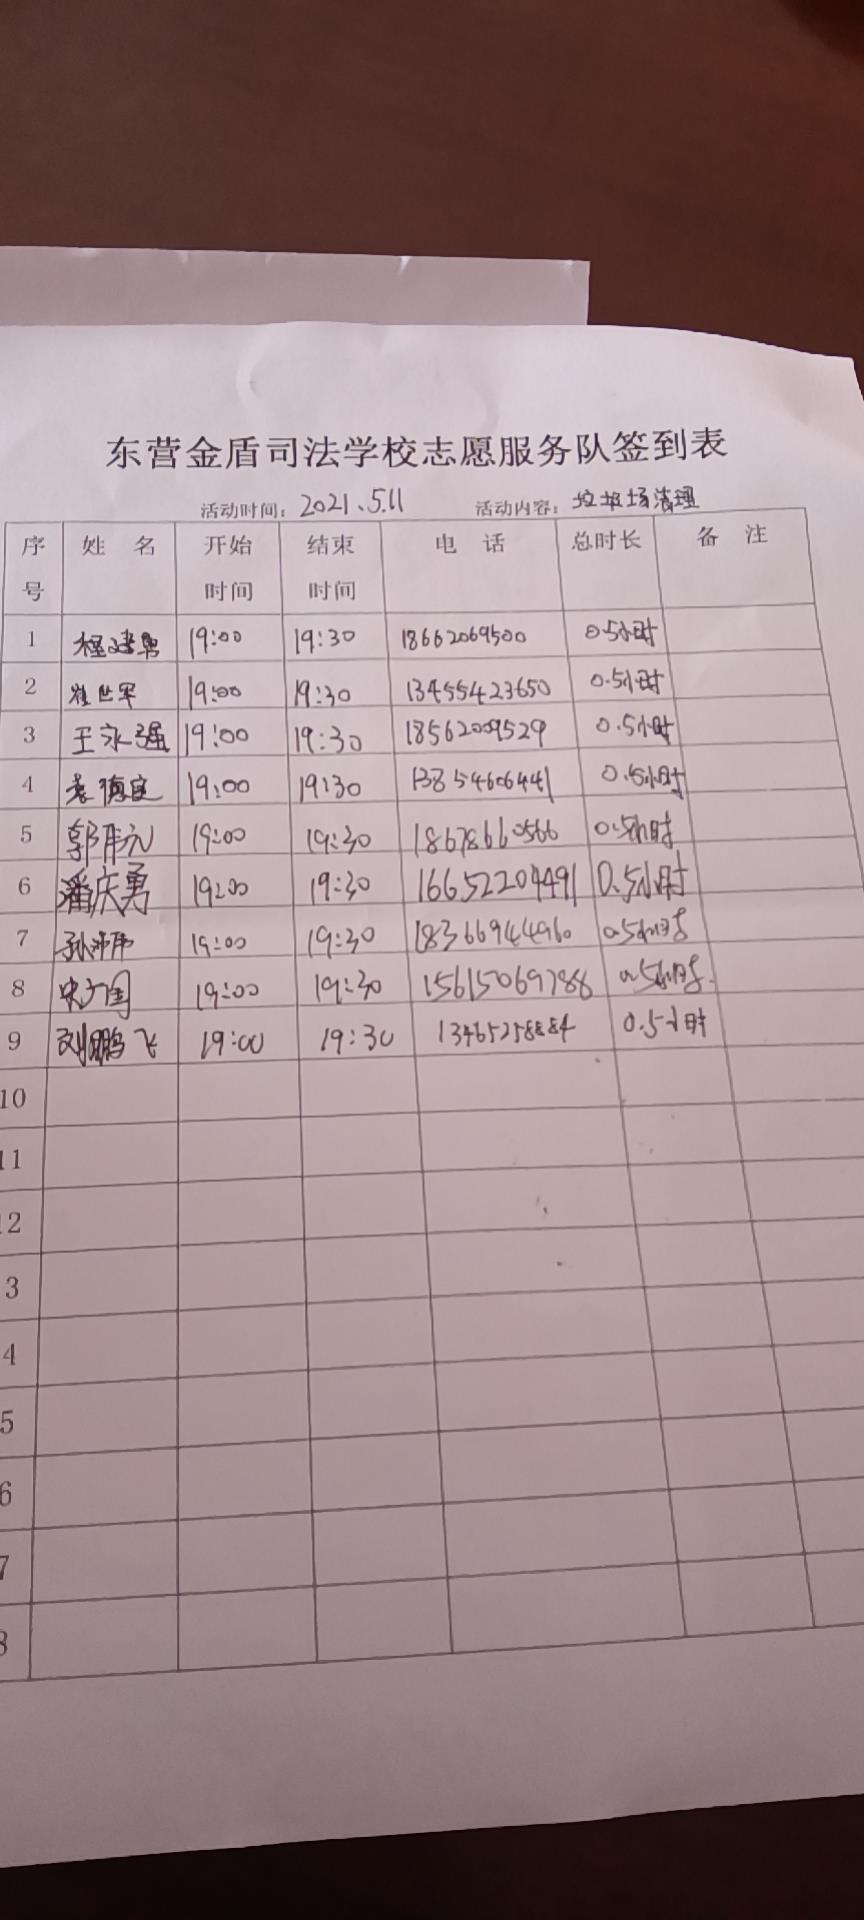 东营金盾司法学校志愿服务队签到表
活动时间：2021.5.11 活动内容：垃圾场清理
序号 姓 名 开始时间 结束时间 电 话 总时长 备 注
1 19:00 19:30 18662069500 0.5小时
2 崔世军 19:00 19:30 13455423650 0.5小时
3 王永强 19:00 19:30 18562009529 0.5小时
4 袁德宝 19:00 19:30 13854606441 0.5小时
5 郭伟元 19:00 19:30 18678660566 0.5小时
6 潘庆勇 19:00 19:30 16652204491 0.5小时
7 孙沛伟 19:00 19:30 18366944960 0.5小时
8 19:00 19:30 15615069788 0.5小时
9 刘鹏飞 19:00 19:30 13465258884 0.5小时
10
11
12
3
4
5
6
7
8